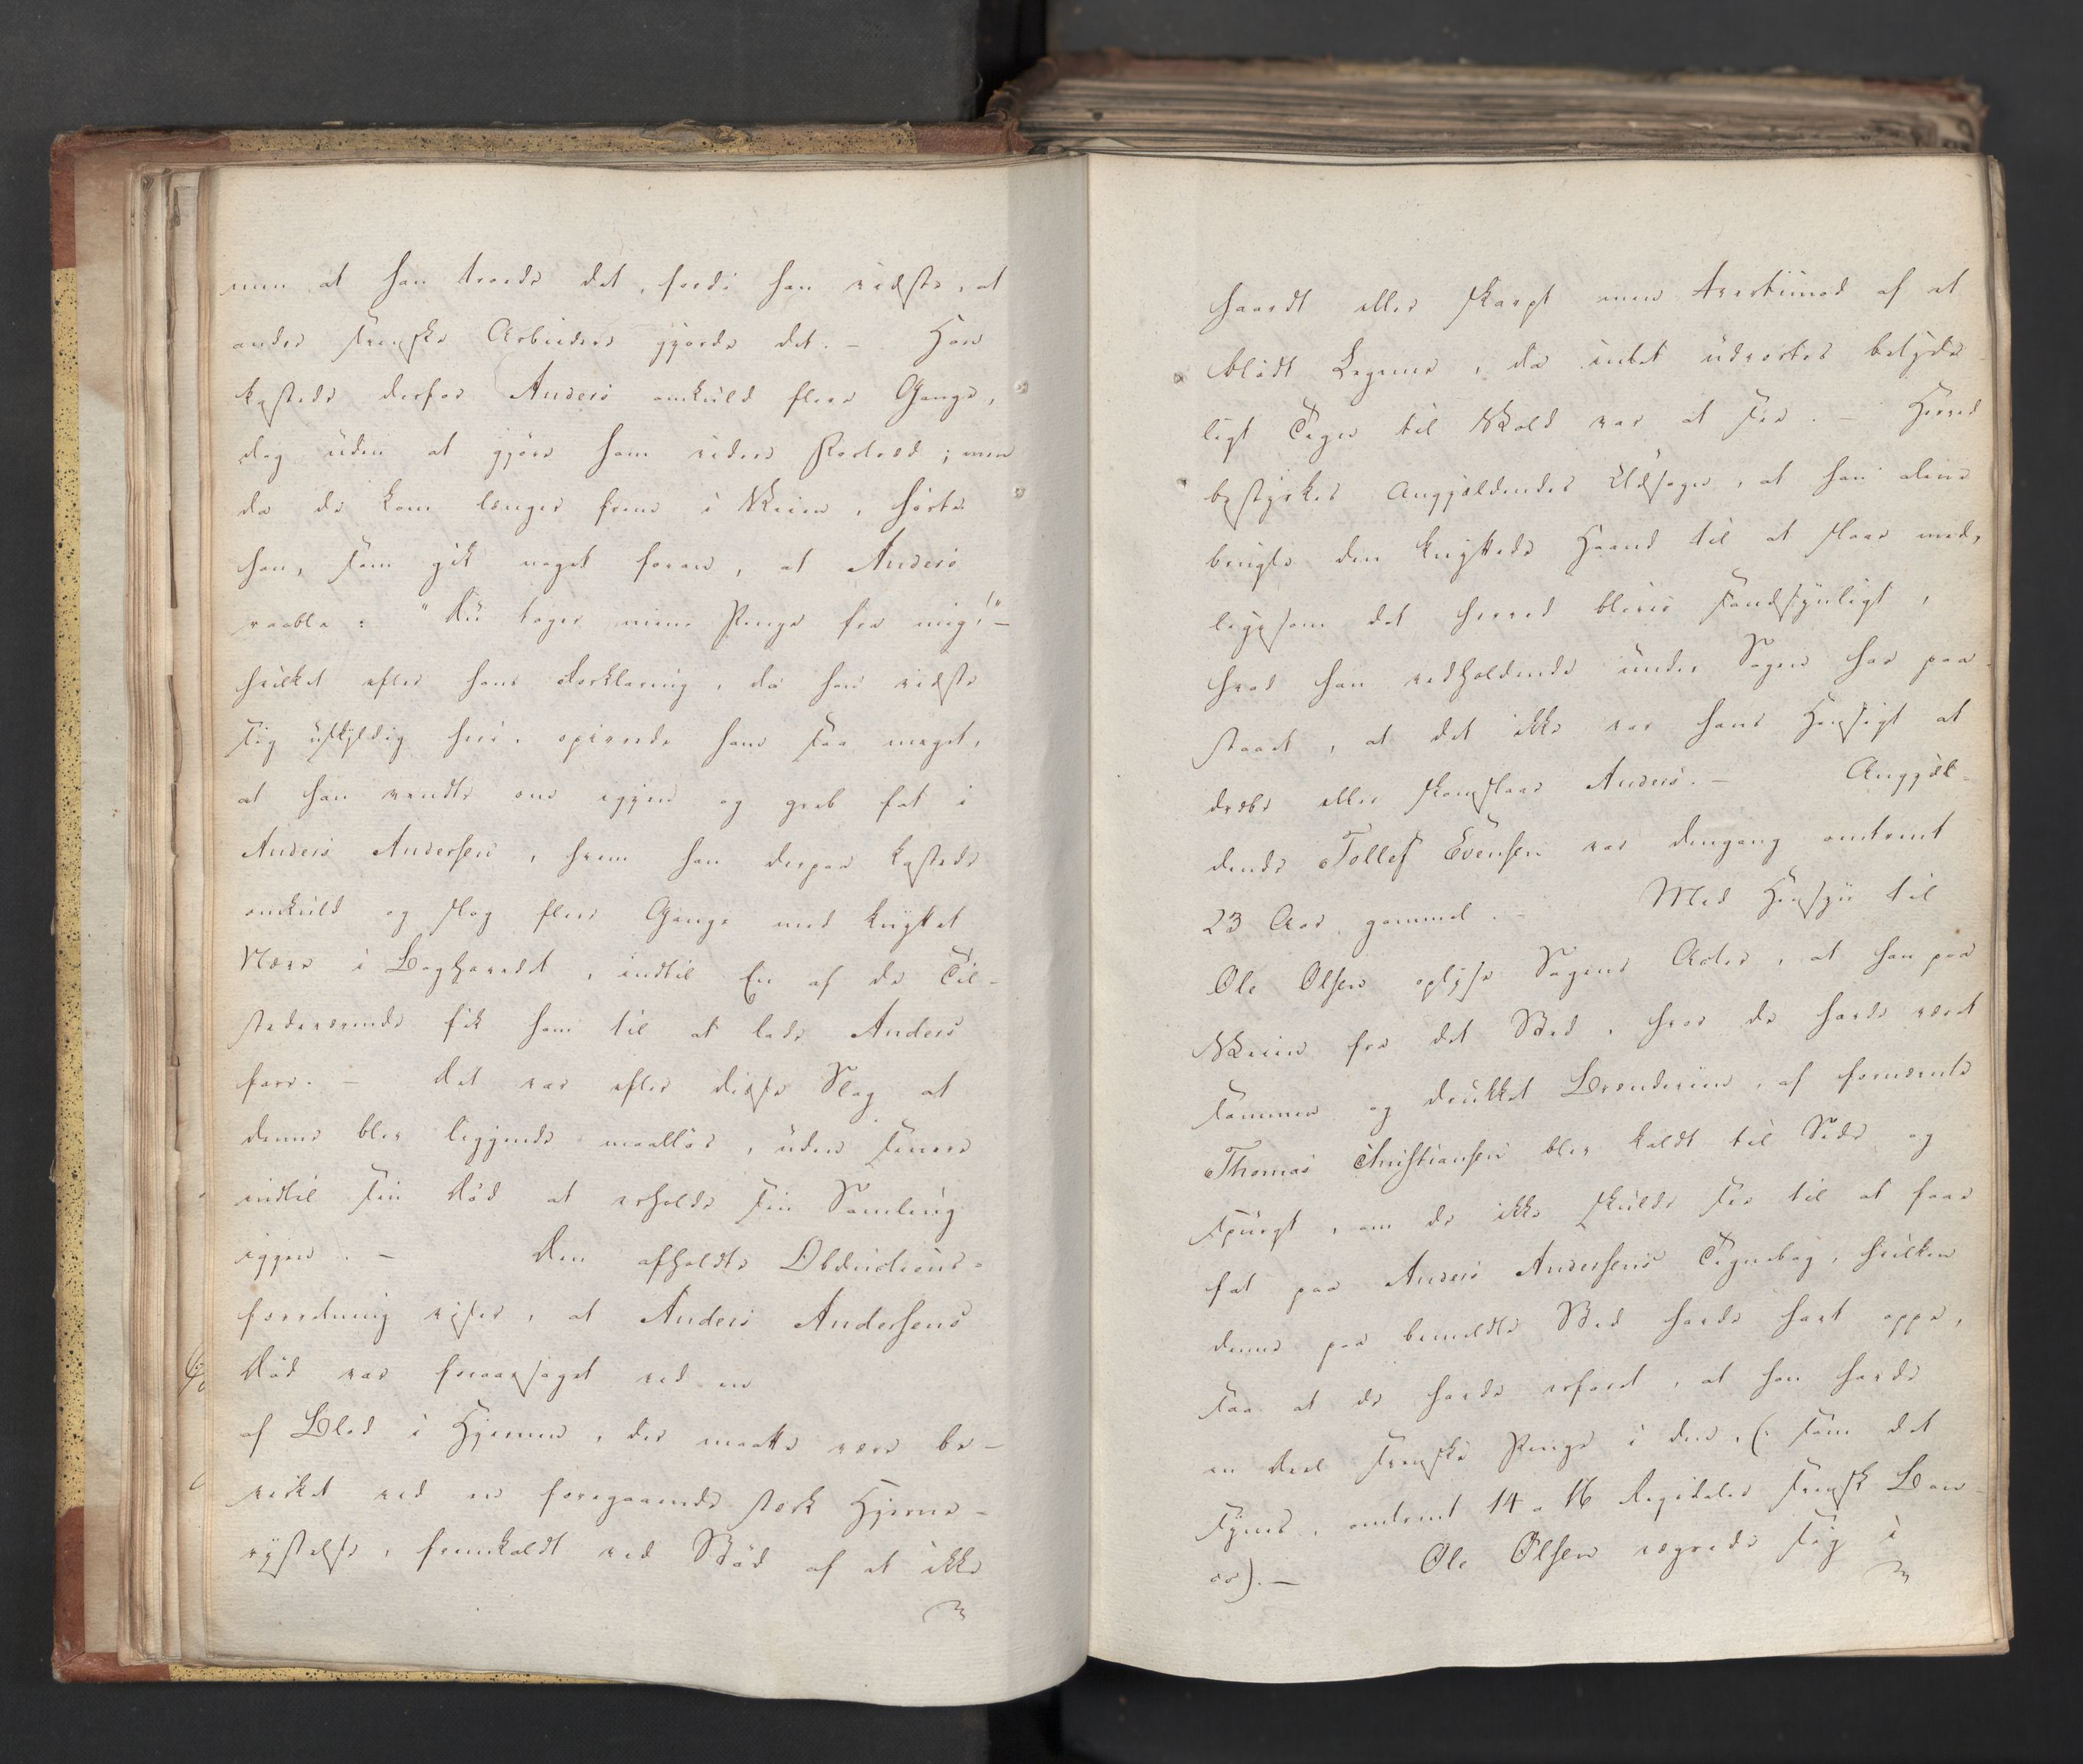 men at han troede det, fordi han vidste, at
andre svenske Arbeidere gjorde det. – Han
kastede derfor Anders omkuld flere Gange,
dog uden at gjøre ham videre Fortræd; men
da de kom længer frem i Skoven, hørte
han, som gik noget foran, at Anders
raabte: "Du tager mine Penge fra mig!" –
hvilket efter hans Forklaring, da han vidste
sig uskyldig heri, opirrede ham saa meget,
at han vendte om igjen og greb fat i
Anders Andersen, hvem han derpaa kastede
omkuld og slog flere Gange med knyttet
Næve i Baghovedet, indtil En af de Til-
stedeværende fik ham til at lade Anders
fare. – Det var efter disse Slag at
denne blev liggende maalløs, uden senere
indtil sin Død at erholde sin Samling
iggen. – Den afholdte Obductions-
forretning viser, at Anders Andersens
Død var foraarsaget ved en
af Blod i Hjernen, der maatte være be-
virket ved en foregaaende stærk Hjerne-
rystelse, fremkaldt ved Stød af et ikke
haardt eller skarpt men tvertimod af et
blødt Legeme, da intet udvortes betyde
ligt Tegn til Vold var at see. – Herved
bestyrkes Angjældendes Udsagn, at han alene
brugte den knyttede Haand til at slaae med,
ligesom det herved bliver sandsynligt,
hvad han vedholdende under Sagen har paa-
staaet, at det ikke var hans Hensigt at
dræbe eller skamslaae Anders. – Angjæl-
dende Tollef Evensen var dengang omtrent
23 Aar gammel. – Med Hensyn til
Ole Olsen oplyse Sagens Acter, at han paa
Veien fra det Sted, hvor de havde været
sammen og drukket Brændeviin, af fornævnte
Thomas Christiansen blev kaldt til Side og
spurgt, om de ikke skulde see til at faae
fat paa Anders Andersens Tegnebog, hvilken
denne paa bemeldte Sted havde havt oppe,
saa at de havde erfaret, at han havde
en Deel svenske Penge i den, (: som det
synes, omtrent 14 a 16 Rigsdaler svensk Ban-
co). – Ole Olsen vægrede sig i